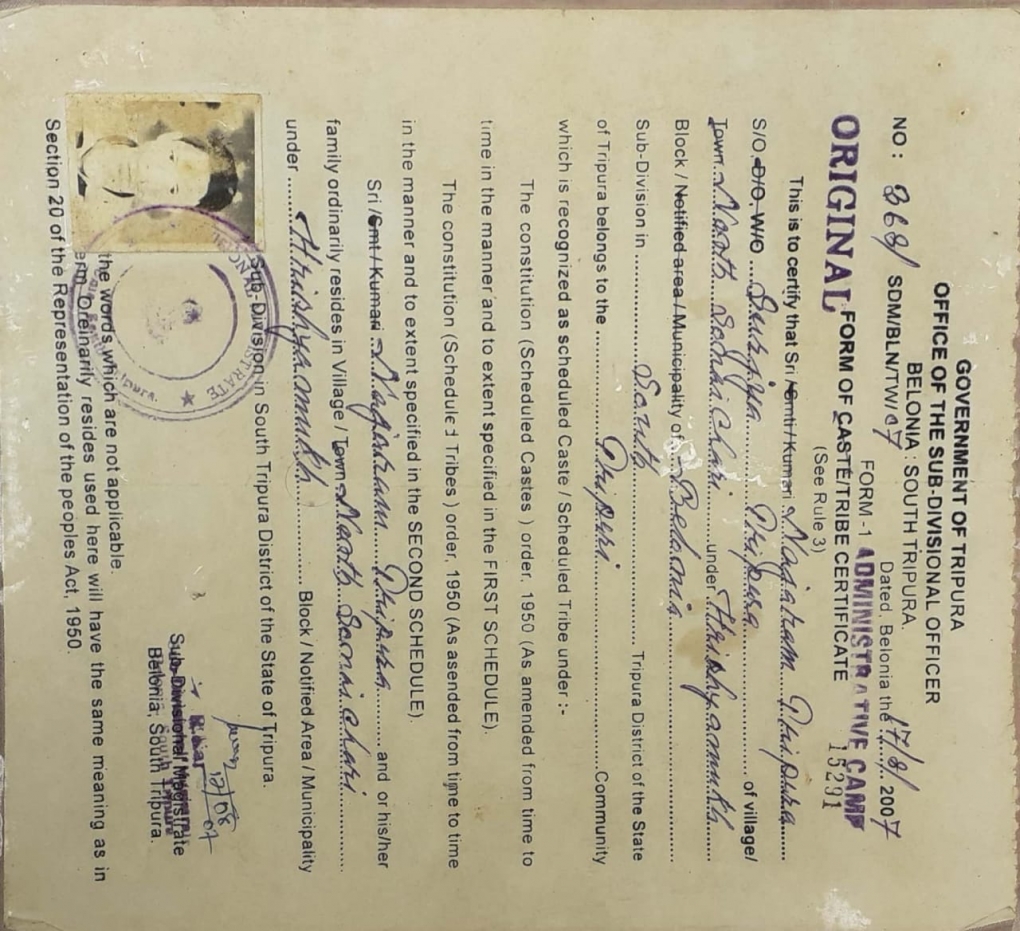 GOVERNMENT OF TRIPURA
OFFICE OF THE SUB-DIVISIONAL OFFICER
BELONIA : SOUTH TRIPURA.
NO : 368/ SDM/BLN/TW/07 Dated Belonia the 17/8/ 2007
FORM -1 ADMINISTRATIVE CAMP
ORIGINAL FORM OF CASTE/TRIBE CERTIFICATE 15291
(See Rule 3)
This is to certify that Sri /Smti/Kumari Nagairam Tripura
S/O. D/O. W/O Surjya Tripura of village/
Town North Sonaichari under Hrishyamukh
Block / Notified area / Municipality of Belonia
Sub-Division in South Tripura District of the State
of Tripura belongs to the Tripuri Community
which is recognized as scheduled Caste / Scheduled Tribe under :-
The constitution (Scheduled Castes ) order, 1950 (As amended from time to
time in the manner and to extent specified in the FIRST SCHEDULE).
The constitution (Schedule Tribes ) order, 1950 (As asended from time to time
in the manner and to extent specified in the SECOND SCHEDULE).
Sri /Smt / Kumari Nagairam Tripura and or his/her
family ordinarily resides in Village / Town North Sonaichari
under Hrishyamukh Block / Notified Area / Municipality
Sub-Division in South Tripura District of the State of Tripura.
17/08/07
Sub-Divisional Magistrate
Belonia; South Tripura.
the words which are not applicable.
erm 'oreinarily resides used here will have the same meaning as in
Section 20 of the Representation of the peoples Act, 1950.